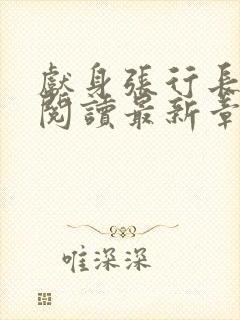 獻身張行長
閱讀最新章
唯深深